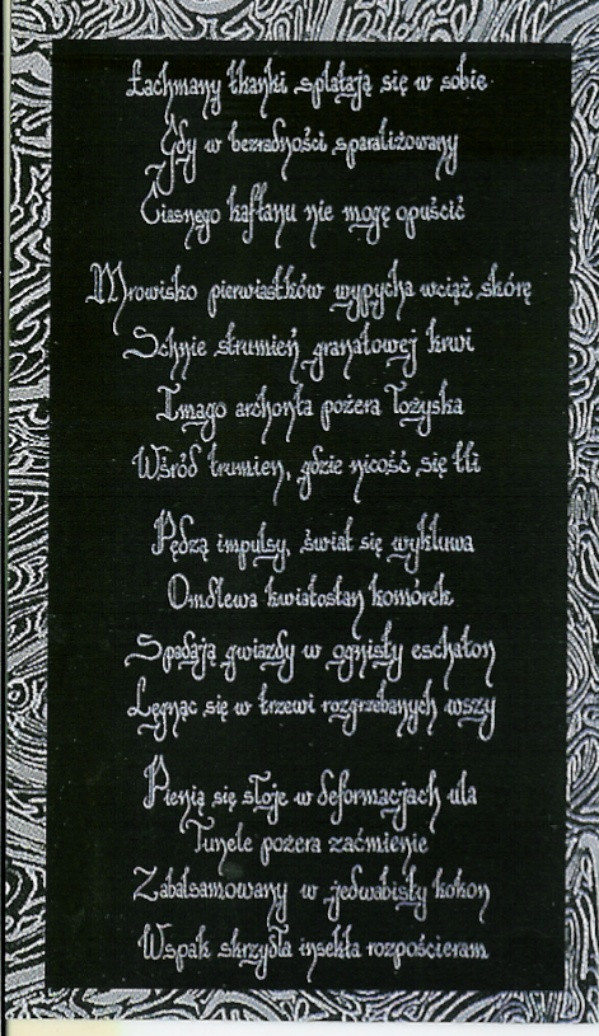 Łachmany tkanki splatają się w sobie
Gdy w bezradności sparaliżowany
Ciasnego kaftanu nie mogę opuścić
Mrowisko pierwiastków wypycha wciąż skórę
Schnie strumień granatowej krwi
Imago archonta pożera łożyska
Wśród trumien, gdzie nicość się tli
Pędzą impulsy, świat się wykluwa
Omdlewa kwiatostan komórek
Spadają gwiazdy w ognisty eschaton
Lęgnąc się w trzewi rozgrzebanych wszy
Pienią się słoje w deformacjach ula
Tunele pożera zaćmienie
Zabalsamowany w jedwabisty kokon
Wspak skrzydła insekta rozpościeram